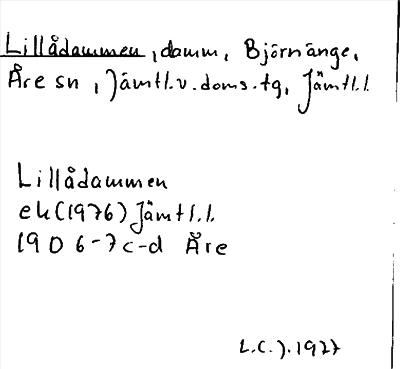 Lillådammen, damm, Björnänge,
Åre sn, Jämtl.v.doms.tg, Jämtl.l.
Lillådammen
ek (1976) Jämtl.l.
19D 6-7c-d Åre
L.C.J. 1977